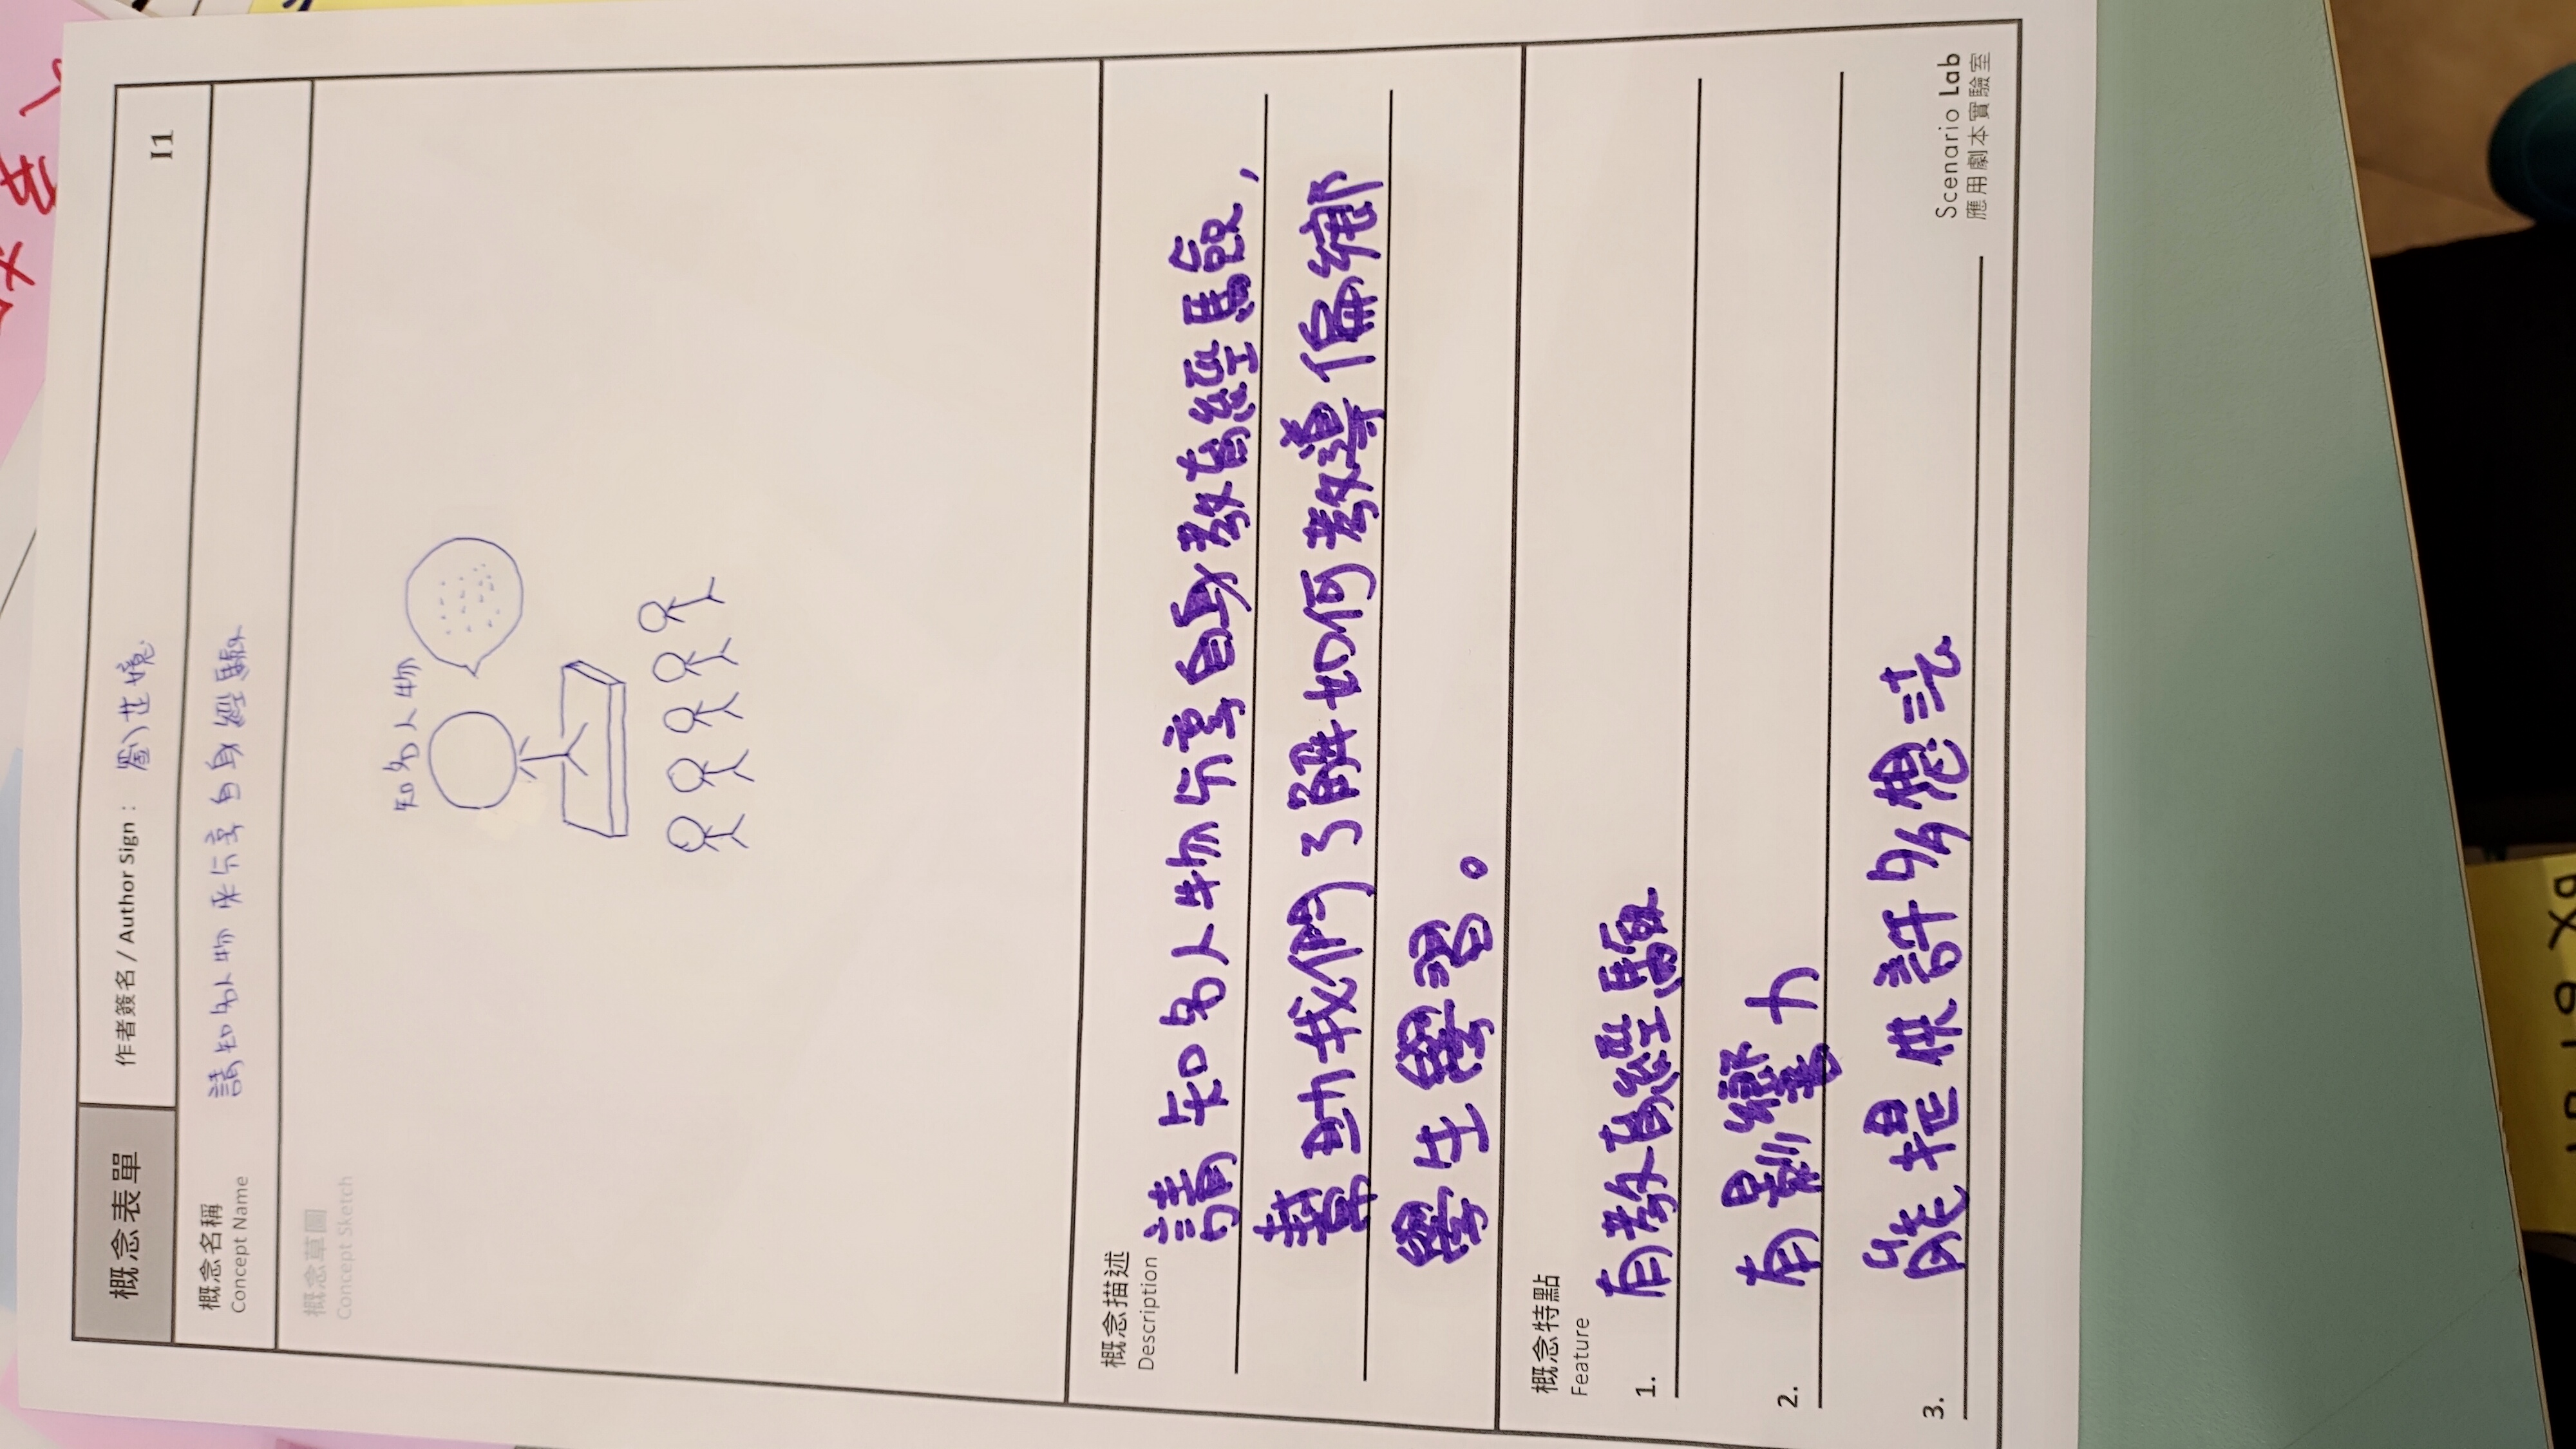 概念表單
作者簽名 / Author Sign：
I1
概念名稱
Concept Name
請知名人物來分享自身經驗
概念草圖
Concept Sketch
知名人物
概念描述
Description
請知名人物分享自身教育經驗,
幫助我們了解如何教導偏鄉
學生學習。
概念特點
Feature
1. 有教育經驗
2. 有影響力
3. 能提供許多想法
Scenario Lab
應用劇本實驗室